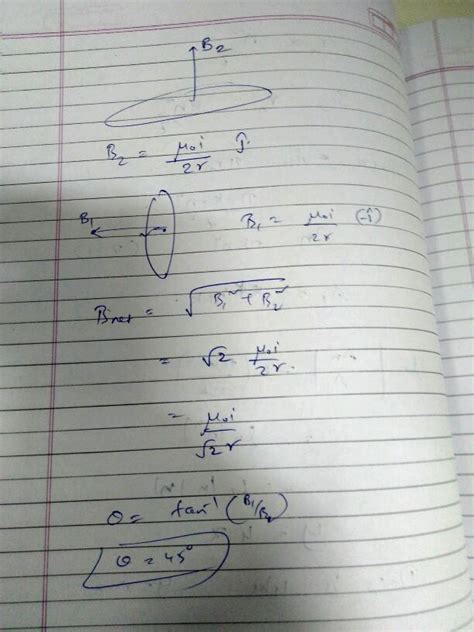 B₂
B₂ = μ₀i/2r ĵ
B₁
B₁ = μ₀i/2r (-î)
Bnet = √(B₁² + B₂²)
= √2 μ₀i/2r
= μ₀i/√2r
θ = tan⁻¹ (B₁/B₂)
θ = 45°